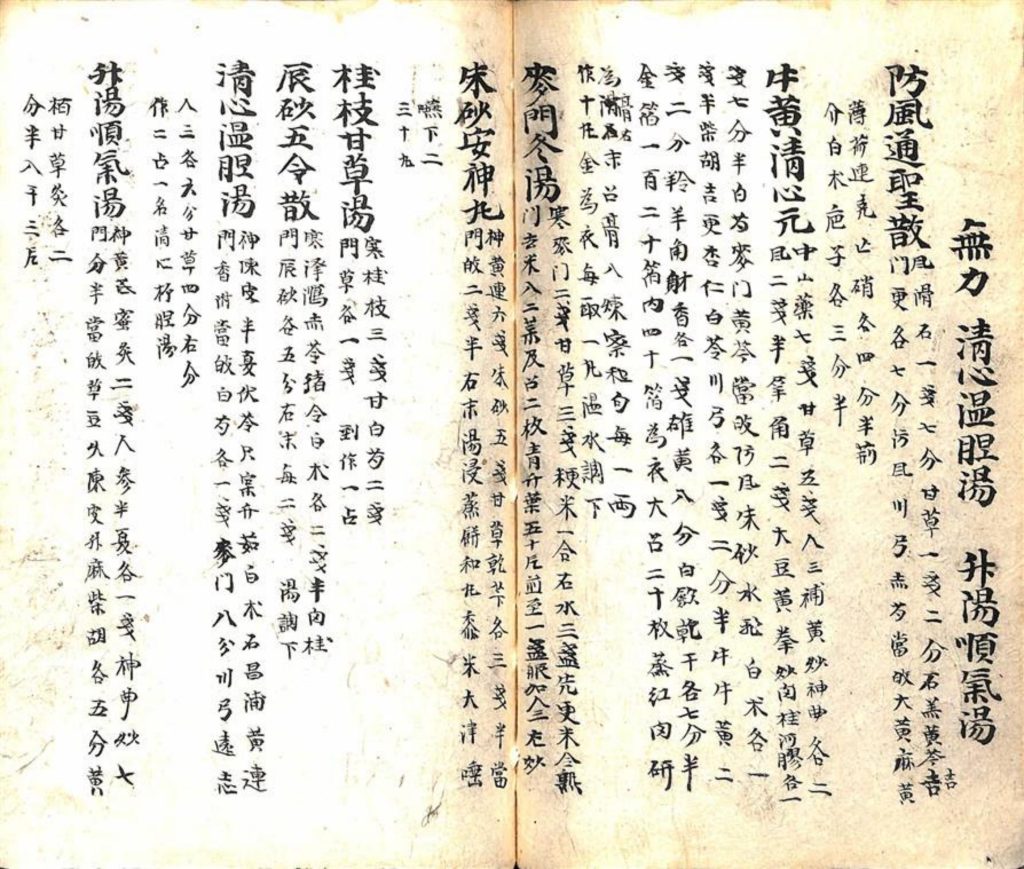 無力 清心温胆湯 升湯順氣湯
防風通聖散門 風滑石一戔七分甘草一戔二分石羔黃芩吉
更各七分防風川弓赤芍當皈大黃麻黃
薄荷連壳亡硝各四分半荊
介白朮梔子各三分半
牛黃清心元 中山藥七戔甘草五戔人三補黃炒神曲各二
風二戔半犀角二戔大豆黃拳炒肉桂阿膠各一
戔七分半白芍麥门黃芩當皈防風朱砂水飛白朮各一
戔半柴胡吉更杏仁白苓川弓各一戔二分半牛黃一
戔二分羚羊角射香各一戔雄黃八分白斂乾干各七分半
金箔一百二十箔內四十箔為衣大召二十枚蒸紅肉研
為膏右末召膏八煉蜜和勻每一兩
作十九金為衣每取一九溫水調下
麥門冬湯 寒麥门二戔甘草三戔粳米一合右水三盞先更米令熟
门去米入二藥及召二枚青竹葉五十片前至一盞服加入三尤炒
朱砂安神丸 神黃連六戔朱砂五戔甘草乾苄各三戔半當
門皈二戔半右末湯浸蒸餅和丸黍米大津唾
嚥下二
三十九
桂枝甘草湯 寒桂枝三戔甘白芍二戔
門草各一戔 到作一占
辰砂五令散 寒澤瀉赤苓猪令白朮各二戔半肉桂
門辰砂各五分右末每二戔 湯調下
清心温胆湯 神陳皮半夏伏苓只實竹茹白朮石昌蒲黃連
門香附當皈白芍各一戔麥门八分川弓遠志
人三各六分甘草四分右分
作二占一名清心抑胆湯
升湯順氣湯 神黃芪蜜灸二戔人參半夏各一戔神曲炒七
門分半當皈草豆久陳皮升麻柴胡各五分黃
栢甘草灸各二
分半入干三片